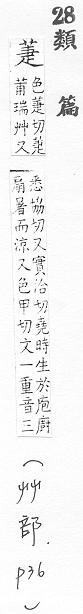 28 類篇
萐
色萐切萐
莆瑞艸又
悉協切又實洽切堯時生於庖廚
扇暑而涼又色甲切文一重音三
(艸部. p36)